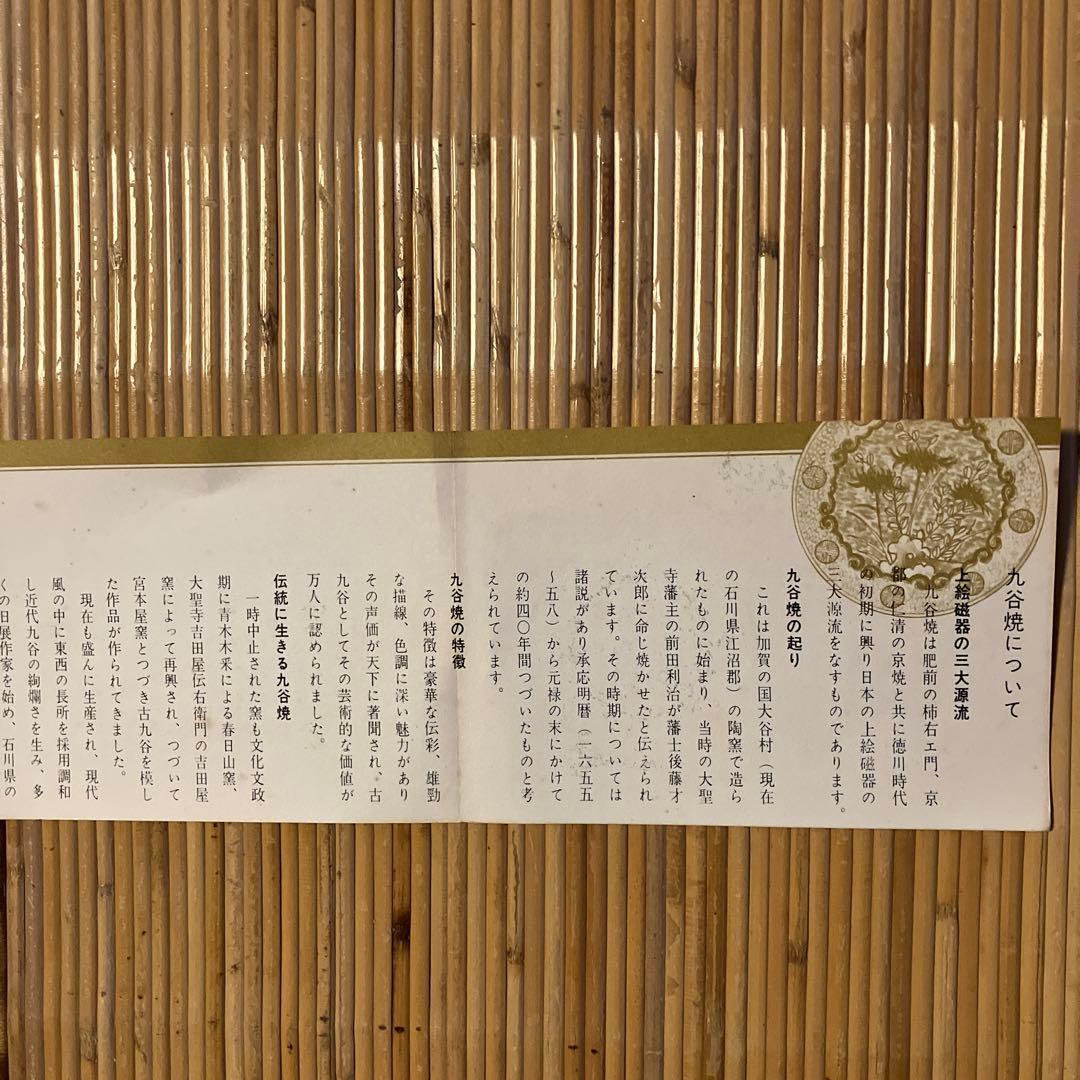 九谷焼について
上絵磁器の三大源流
九谷焼は肥前の柿右ェ門、京
都の仁清の京焼と共に徳川時代
の初期に興り日本の上絵磁器の
三大源流をなすものであります。
九谷焼の起り
これは加賀の国大谷村（現在
の石川県江沼郡）の陶窯で造ら
れたものに始まり、当時の大聖
寺藩主の前田利治が藩士後藤才
次郎に命じ焼かせたと伝えられ
ています。その時期については
諸説があり承応明暦（一六五五
〜五八）から元禄の末にかけて
の約四〇年間つづいたものと考
えられています。
九谷焼の特徴
その特徴は豪華な伝彩、雄勁
な描線、色調に深い魅力があり
その声価が天下に著聞され、古
九谷としてその芸術的な価値が
万人に認められました。
伝統に生きる九谷焼
一時中止された窯も文化文政
期に青木木米による春日山窯、
大聖寺吉田屋伝右衛門の吉田屋
窯によって再興され、つづいて
宮本屋窯とつづき古九谷を模し
た作品が作られてきました。
現在も盛んに生産され、現代
風の中に東西の長所を採用調和
し近代九谷の絢爛さを生み、多
くの日展作家を始め、石川県の